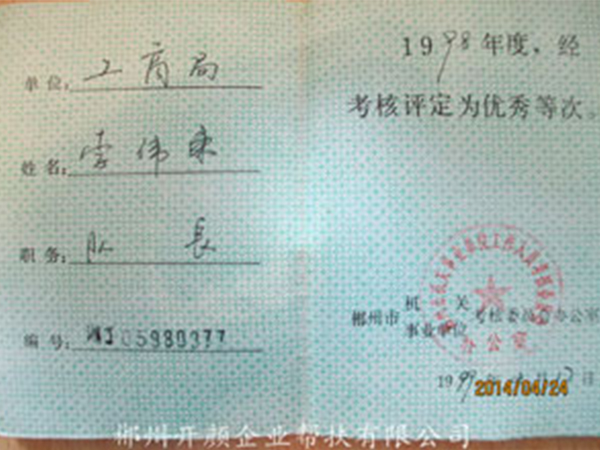 单位: 工商局
姓名: 李伟来
职务: 队长
编号: 05980377
1998年度，经
考核评定为优秀等次。
郴州市 机关 事业单位 考核委员会办公室
办公室
1999年 月 日
2014/04/24
郴州开颜企业帮扶有限公司